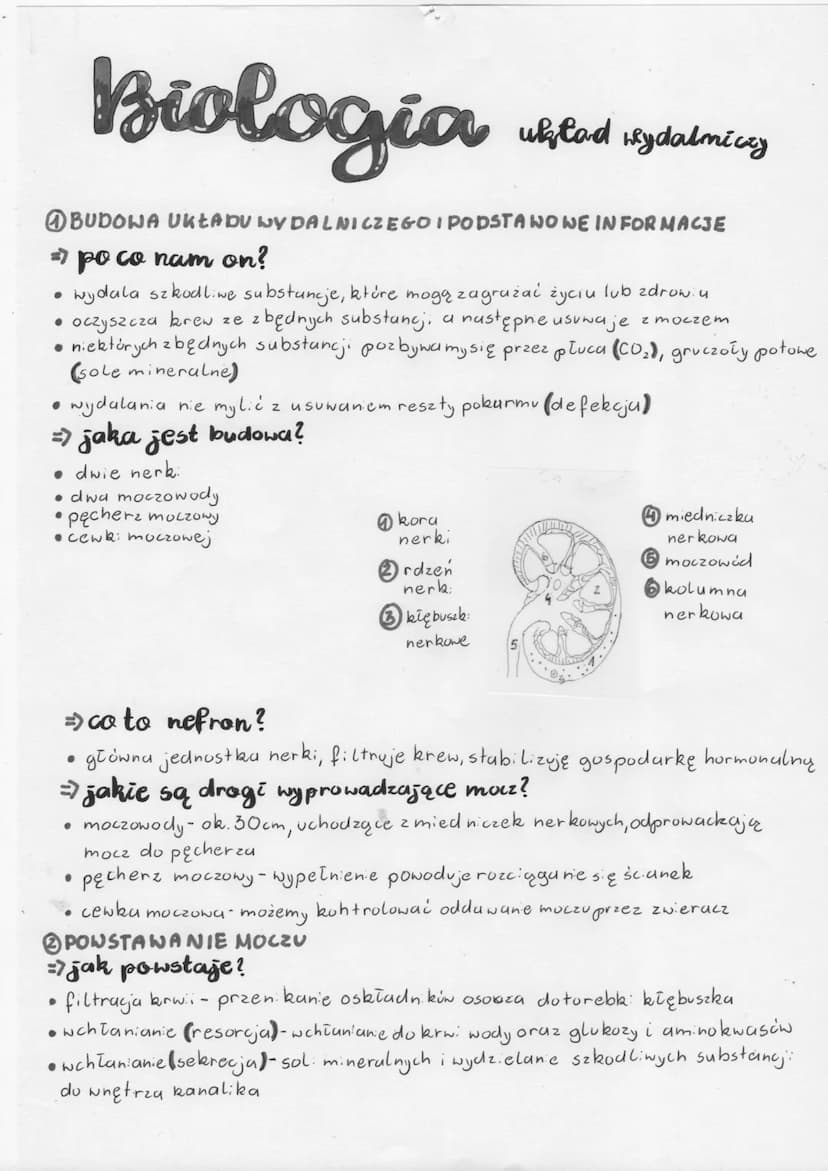 Biologia układ wydalniczy
① BUDOWA UKŁADU WYDALNICZEGO I PODSTAWOWE INFORMACJE
⇒ po co nam on?
• wydala szkodliwe substancje, które mogą zagrażać życiu lub zdrowiu
• oczyszcza krew ze zbędnych substancji, a następne usuwa je z moczem
• niektórych zbędnych substancji pozbywamy się przez płuca (CO₂), gruczoły potowe
(sole mineralne)
• wydalania nie mylić z usuwaniem reszty pokarmu (defekcja)
⇒ jaka jest budowa?
• dwie nerki
• dwa moczowody
• pęcherz moczowy
• cewki moczowej
① kora
nerki
② rdzeń
nerki
③ kłębuszki
nerkowe
6
4
2
5
1
3
④ miedniczka
nerkowa
⑤ moczowód
⑥ kolumna
nerkowa
⇒ co to nefron?
• główna jednostka nerki, filtruje krew, stabilizuję gospodarkę hormonalną
⇒ jakie są drogi wyprowadzające mocz?
• moczowody - ok. 30cm, uchodzące z miedniczek nerkowych, odprowadzają
mocz do pęcherza
• pęcherz moczowy - wypełnienie powoduje rozciąganie się ścianek
• cewka moczowa - możemy kontrolować oddawanie moczu przez zwieracz
② POWSTAWANIE MOCZU
⇒ jak powstaje?
• filtracja krwi - przenikanie oskładników osocza do torebki kłębuszka
• wchłanianie (resorcja) - wchłanianie do krwi wody oraz glukozy i aminokwasów
• wchłanianie (sekrecja) - soli mineralnych i wydzielanie szkodliwych substancji
do wnętrza kanalika